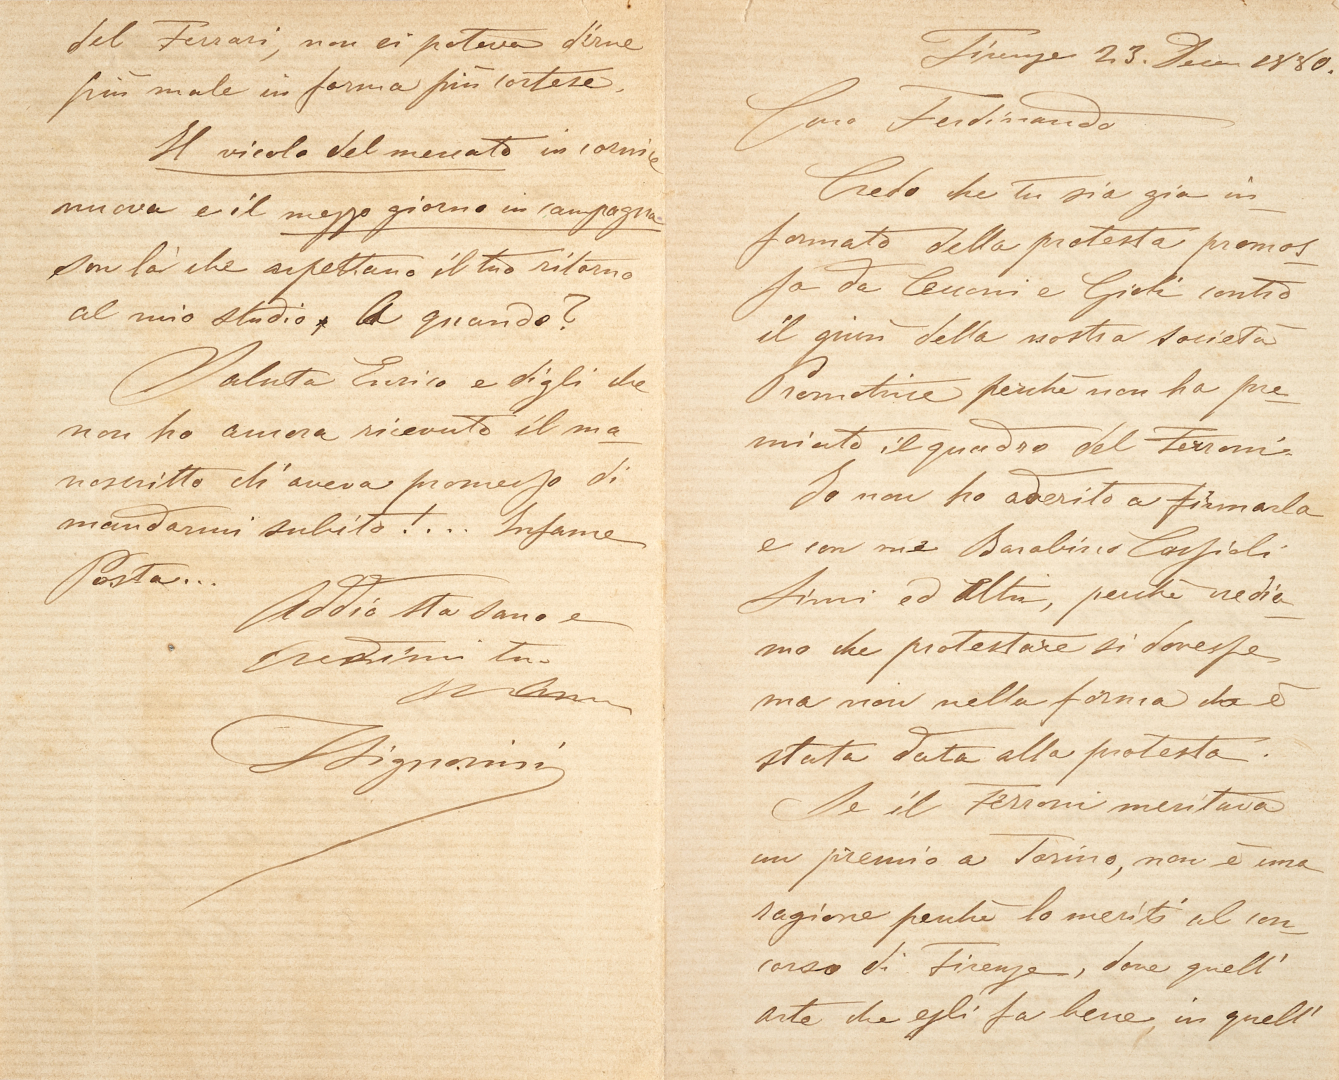 Firenze 23. Decem 1880.
Caro Ferdinando
Credo che tu sia gia in_
formato della protesta promos_
sa da Cecconi e Gioli contro
il giurì della nostra società
Promotrice perchè non ha pre_
miato il quadro del Ferroni.
Io non ho aderito a firmarla
e con me Barabino Cassioli
Simi ed Altri, perchè credia_
mo che protestare si dovesse
ma non nella forma che è
stata data alla protesta.
Se il Ferroni meritava
un premio a Torino, non è una
ragione perchè lo meriti al con_
corso di Firenze, dove quell'
arte che egli fa bene, in quell'
del Ferrari, non ci poteva dirne
più male in forma più cortese.
Il vicolo del mercato in cornice
nuova e il mezzo giorno in campagna
son là che aspettano il tuo ritorno
al mio studio, A quando?
Saluta Enrico e digli che
non ho ancora ricevuto il ma_
noscritto ch'aveva promesso di
mandarmi subito!... Infame
Posta...
Addio sta sano e
credimi tuo
TSignorini